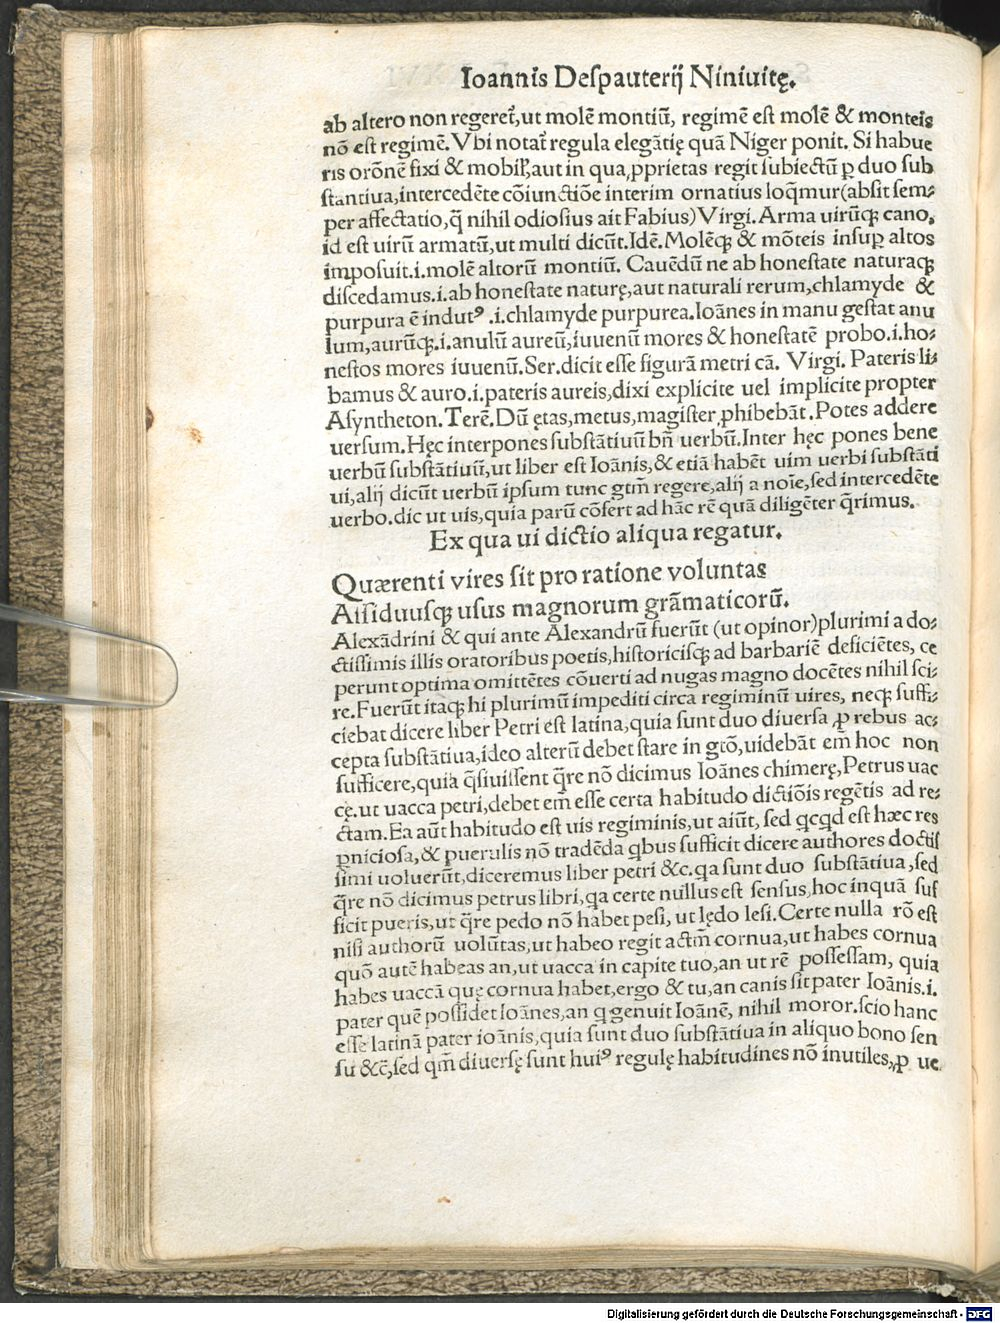 Ioannis Deſpauterij Niniuitę.
ab altero non regeret᷑,ut molē montiū, regimē eſt molē & monteis
nō eſt regimē. Vbi notat᷑ regula elegātię quā Niger ponit. Si habue
ris orōnē fixi & mobil̕,aut in qua ꝓprietas regit ſubiectū ꝑ duo ſub
ſtantiua,intercedēte cōiunctiōe interim ornatius loq̄mur(abſit ſem-
per affectatio,q̄ nihil odioſius ait Fabius)Virgi. Arma uirūqꝫ cano,
id eſt uirū armatū,ut multi dicūt.Idē. Molēqꝫ & mōteis inſuꝑ altos
impoſuit.i.molē altorū montiū. Cauēdū ne ab honeſtate naturaqꝫ
diſcedamus.i.ab honeſtate naturę,aut naturali rerum,chlamyde &
purpura ē indutꝰ .i.chlamyde purpurea.Ioānes in manu geſtat anu
lum,aurūqꝫ.i.anulū aureū,iuuenū mores & honeſtatē probo.i.ho-
neſtos mores iuuenū.Ser.dicit eſſe figurā metri cā. Virgi. Pateris li-
bamus & auro.i.pateris aureis,dixi explicite uel implicite propter
Aſyntheton. Terē. Dū ętas,metus,magiſter ꝓhibebāt. Potes addere
uerſum. Hęc interpones ſubſtātiuū bn̄ uerbū.Inter hęc pones bene
uerbū ſubſtātiuū,ut liber eſt Ioānis,& etiā habēt uim uerbi ſubſtāti
ui,alij dicūt uerbū ipſum tunc gtm̄ regere,alij a noīe,ſed intercedēte
uerbo.dic ut uis,quia parū cōfert ad hāc rē quā diligēter q̄rimus.
Ex qua ui dictio aliqua regatur.
Quærenti vires ſit pro ratione voluntas
Aſſiduuſqꝫ uſus magnorum grāmaticorū.
Alexādrini & qui ante Alexandrū fuerūt (ut opinor)plurimi a do-
ctiſſimis illis oratoribus poetis,hiſtoriciſqꝫ ad barbariē deficiētes, ce
perunt optima omittētes cōuerti ad nugas magno docētes nihil ſci-
re.Fuerūt itaqꝫ hi plurimū impediti circa regiminū uires, neqꝫ ſuffi-
ciebat dicere liber Petri eſt latina,quia ſunt duo diuerſa ꝓ rebus ac-
cepta ſubſtātiua,ideo alterū debet ſtare in gtō,uidebāt em̄ hoc non
ſufficere,quia q̄ſiuiſſent q̄re nō dicimus Ioānes chimerę,Petrus uac
cę.ut uacca petri,debet em̄ eſſe certa habitudo dictiōis regētis ad re-
ctam. Ea aūt habitudo eſt uis regiminis,ut aiūt, ſed qcqd eſt hæc res
ꝑnicioſa,& puerulis nō tradēda qbus ſufficit dicere authores doctiſ
ſimi uoluerūt,diceremus liber petri &c.qa ſunt duo ſubſtātiua,ſed
q̄re nō dicimus petrus libri,qa certe nullus eſt ſenſus,hoc inquā ſuf
ficit pueris,ut q̄re pedo nō habet peſi, ut lędo leſi.Certe nulla rō eſt
niſi authorū uolūtas,ut habeo regit actm̄ cornua,ut habes cornua
quō autē habeas an,ut uacca in capite tuo,an ut rē poſſeſſam, quia
habes uaccā quę cornua habet,ergo & tu,an canis ſit pater Ioānis.i.
pater quē poſſidet Ioānes,an q genuit Ioānē, nihil moror.ſcio hanc
eſſe latinā pater ioānis,quia ſunt duo ſubſtātiua in aliquo bono ſen
ſu &c̄,ſed qm̄ diuerſę ſunt huiꝰ regulę habitudines nō inutiles,ꝓ ue
Digitalisierung gefördert durch die Deutsche Forschungsgemeinschaft - DFG